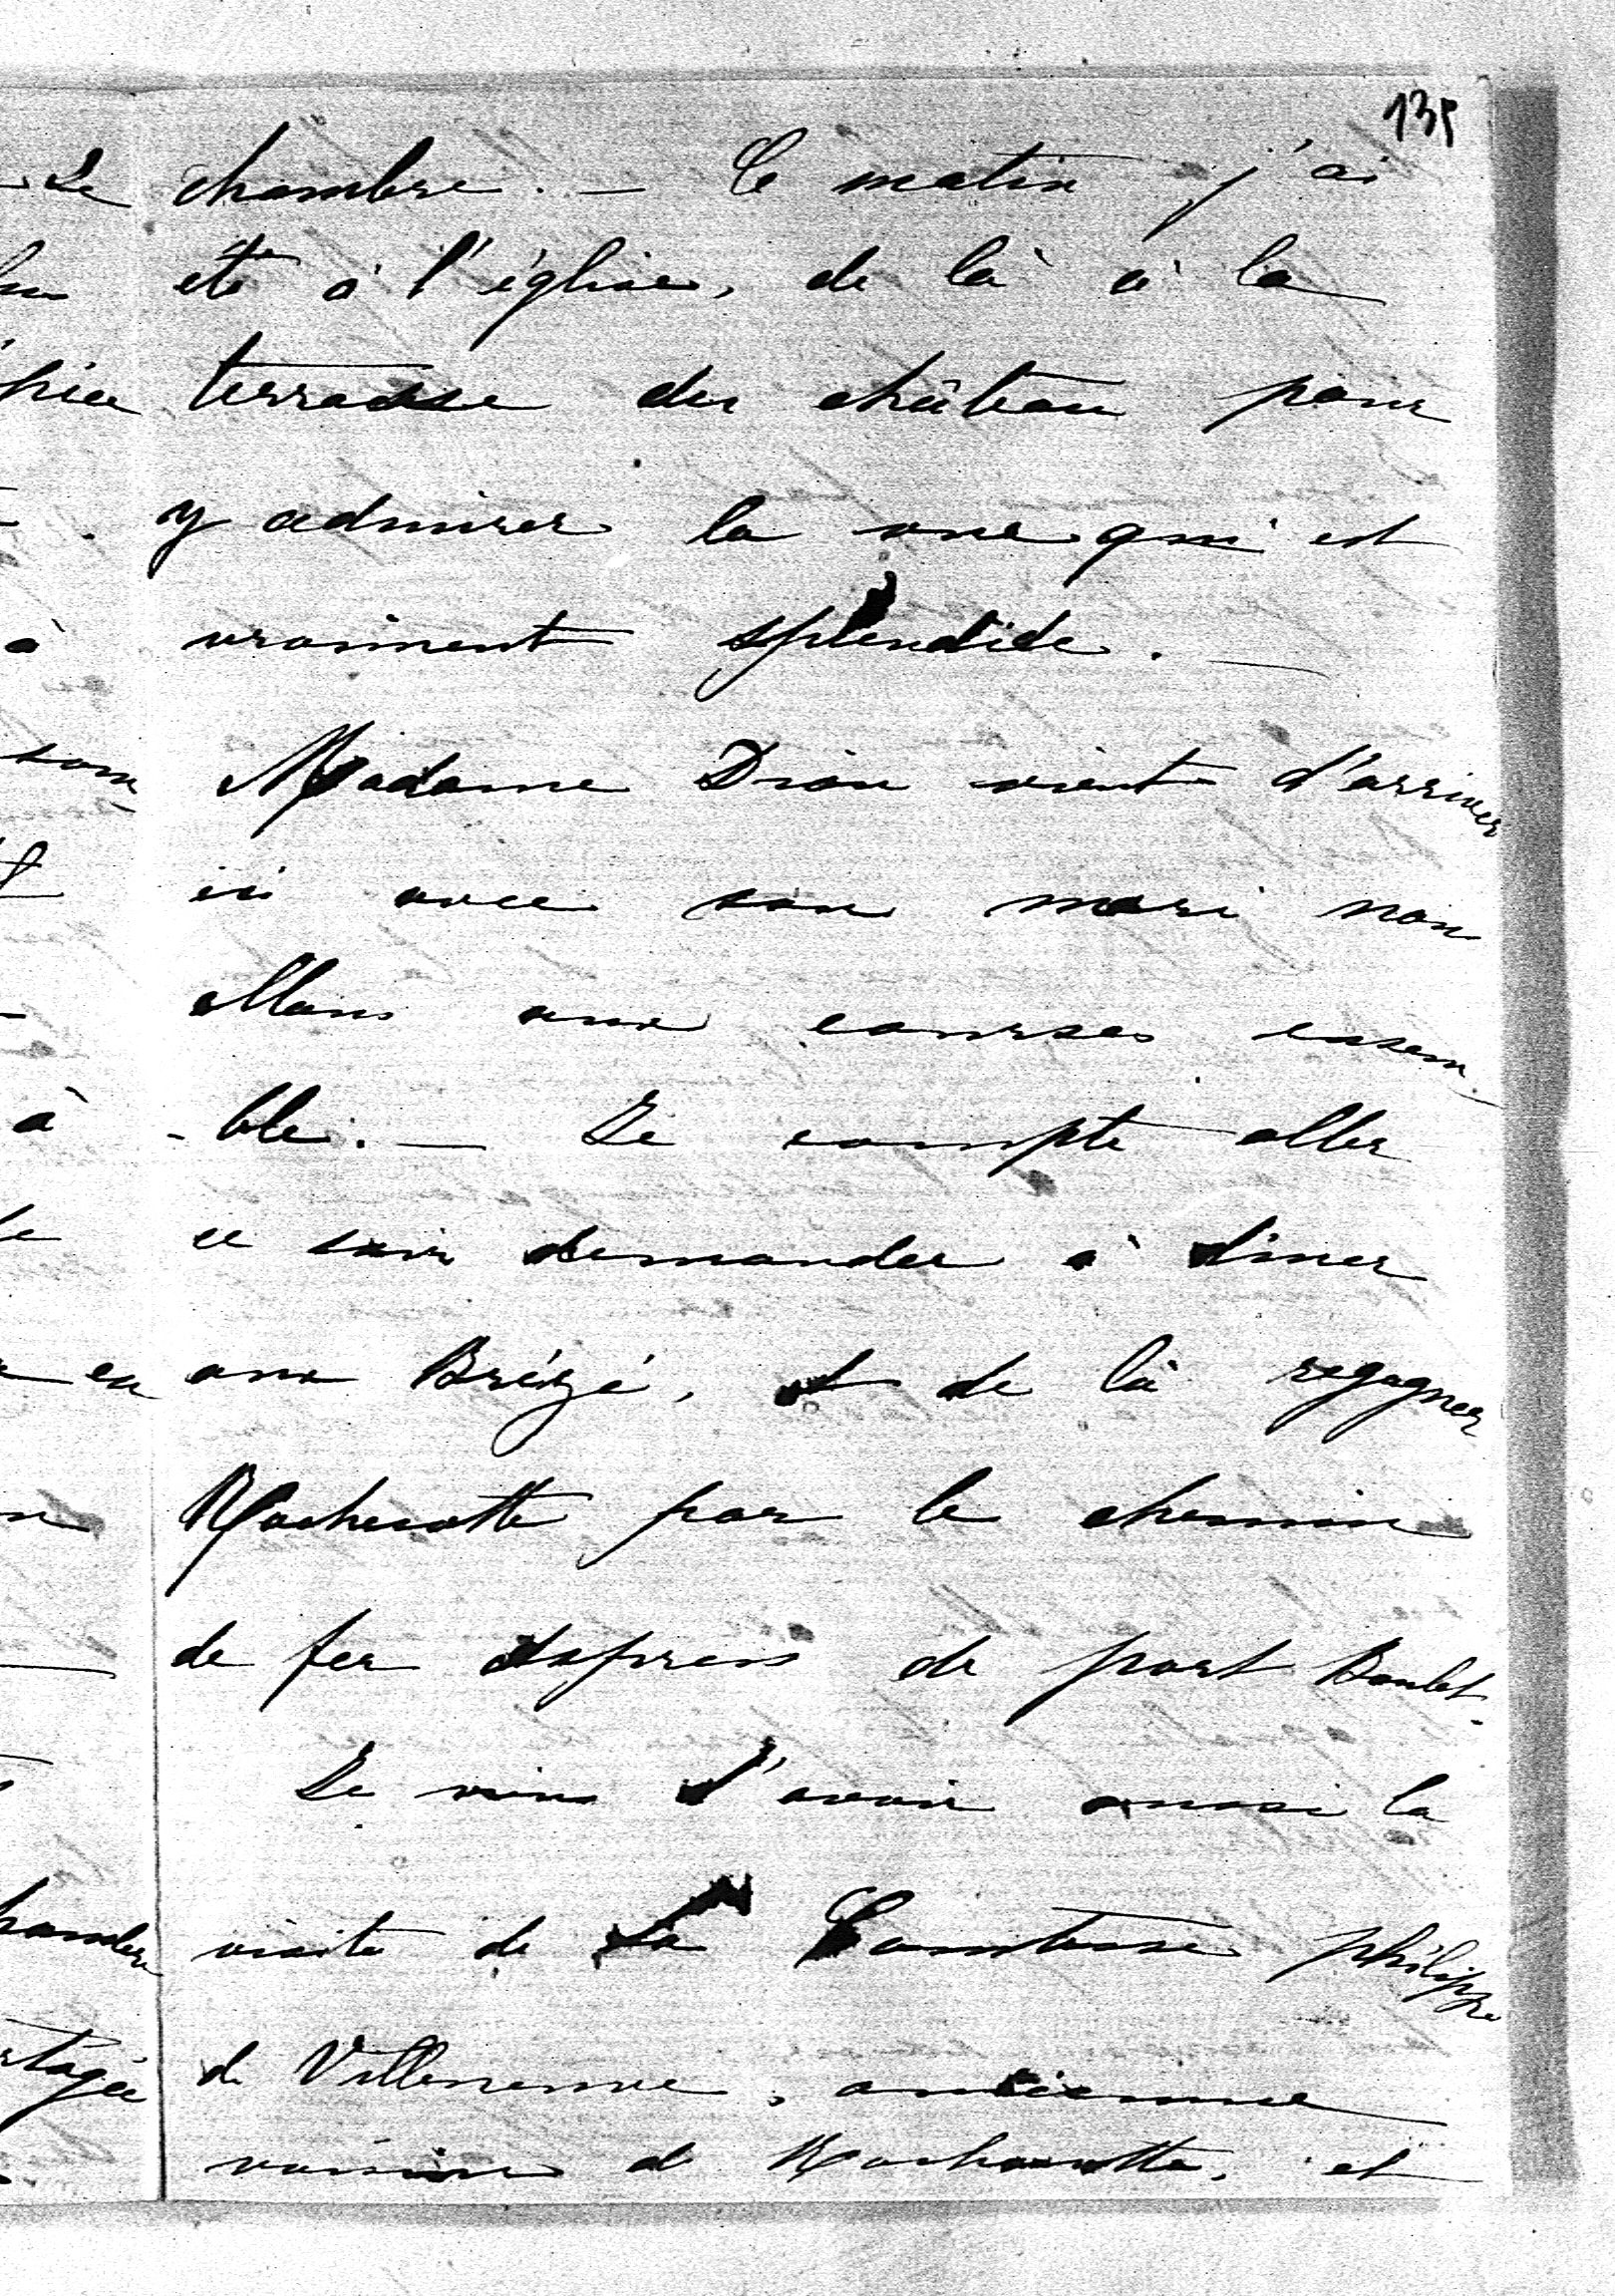 135
chambre. — Ce matin j'ai
été à l'église, de là à la
terrasse du château pour
y admirer la vue qui est
vraiment splendide. —
Madame Dion vient d'arriver
ici avec son mari nous
allons aux courses ensem
- ble. — Je compte aller
ce soir demander à diner
aux Brézé, et de là regagner
Rochecotte par le chemin
de fer express de port Boulet.
Je viens d'avoir aussi la
visite de la Comtesse philippe
de Villeneuve, ancienne
voisine de Rochecotte, et